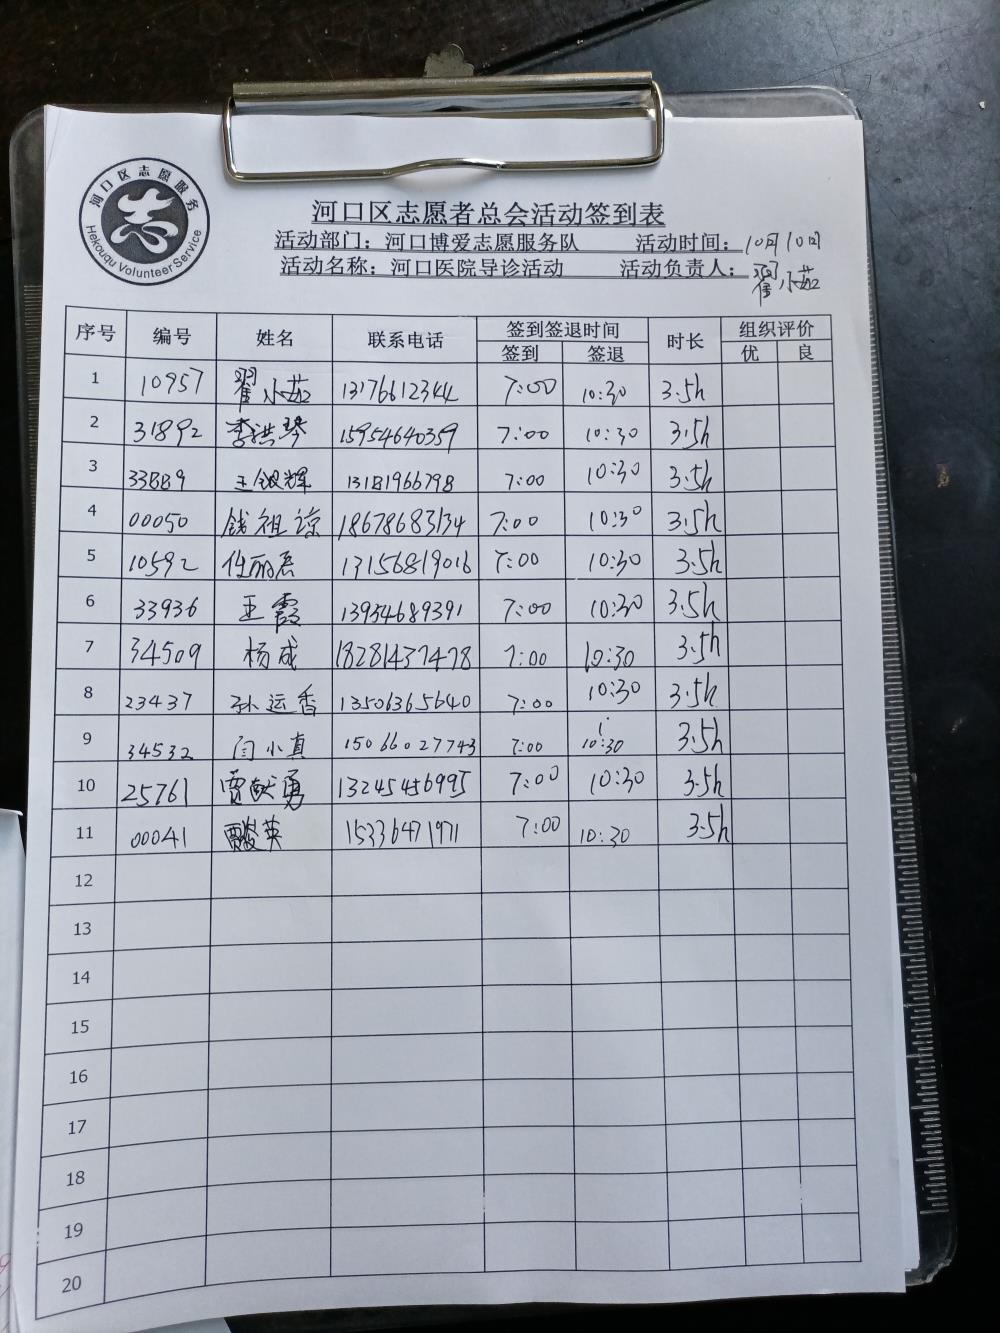 河口区志愿服务
志
Hekouqu Volunteer Service
河口区志愿者总会活动签到表
活动部门：河口博爱志愿服务队 活动时间：10月10日
活动名称：河口医院导诊活动 活动负责人：翟小茹
序号 编号 姓名 联系电话 签到签退时间 时长 组织评价
签到 签退 优 良
1 10957 翟小茹 13176612344 7:00 10:30 3.5h
2 31892 李洪琴 15954640359 7:00 10:30 3.5h
3 33889 王银辉 13181966798 7:00 10:30 3.5h
4 00050 钱祖谅 18678683134 7:00 10:30 3.5h
5 10592 任丽磊 13156819016 7:00 10:30 3.5h
6 33936 王霞 13954689391 7:00 10:30 3.5h
7 34509 杨成 18281437478 7:00 10:30 3.5h
8 23437 孙运香 13506365640 7:00 10:30 3.5h
9 34532 闫小真 15066027743 7:00 10:30 3.5h
10 25761 贾献勇 13245456995 7:00 10:30 3.5h
11 00041 英 15336471971 7:00 10:30 3.5h
12
13
14
15
16
17
18
19
20